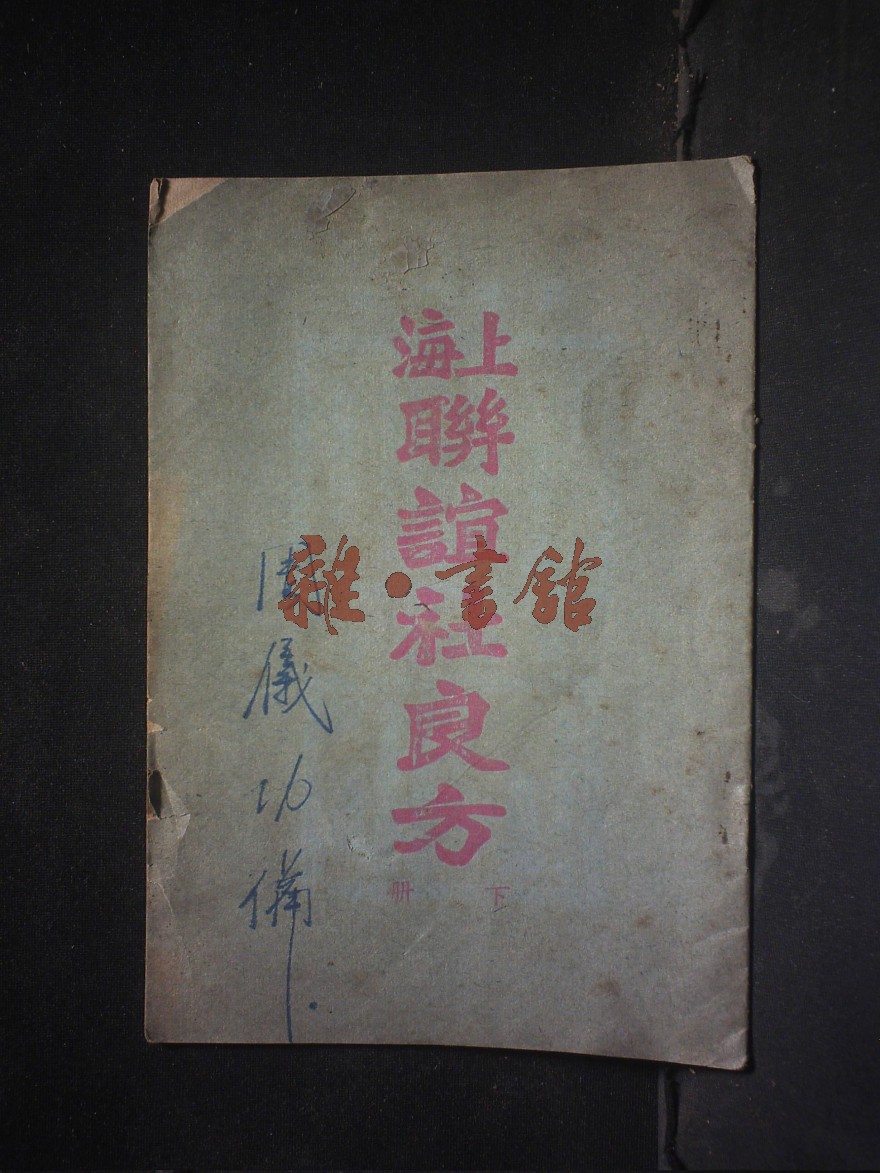 上海
聯誼社良方
下冊
周儀功備
雜·書館